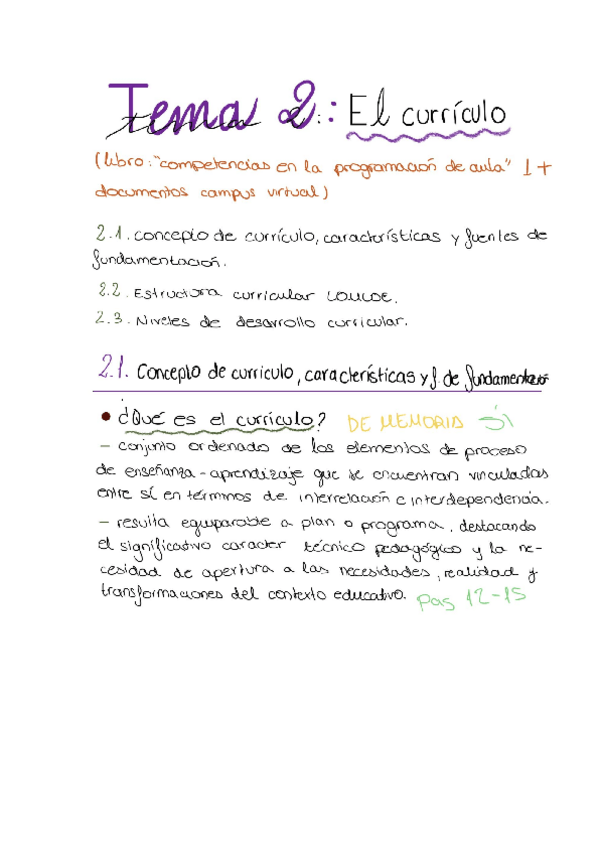 Tema 2: El currículo
(libro: "competencias en la programación de aula" 1 +
documentos campus virtual)
2.1. concepto de currículo, características y fuentes de
fundamentación.
2.2. Estructura curricular LOMLOE.
2.3. Niveles de desarrollo curricular.
2.1. Concepto de currículo, características y f. de fundamentación
• ¿Qué es el currículo? DE MEMORIA SÍ
– conjunto ordenado de los elementos de proceso
de enseñanza - aprendizaje que se encuentran vinculadas
entre sí en términos de interrelación e interdependencia.
– resulta equiparable a plan o programa, destacando
el significativo caracter técnico pedagógico y la ne-
cesidad de apertura a las necesidades, realidad y
transformaciones del contexto educativo. Pag 12-15